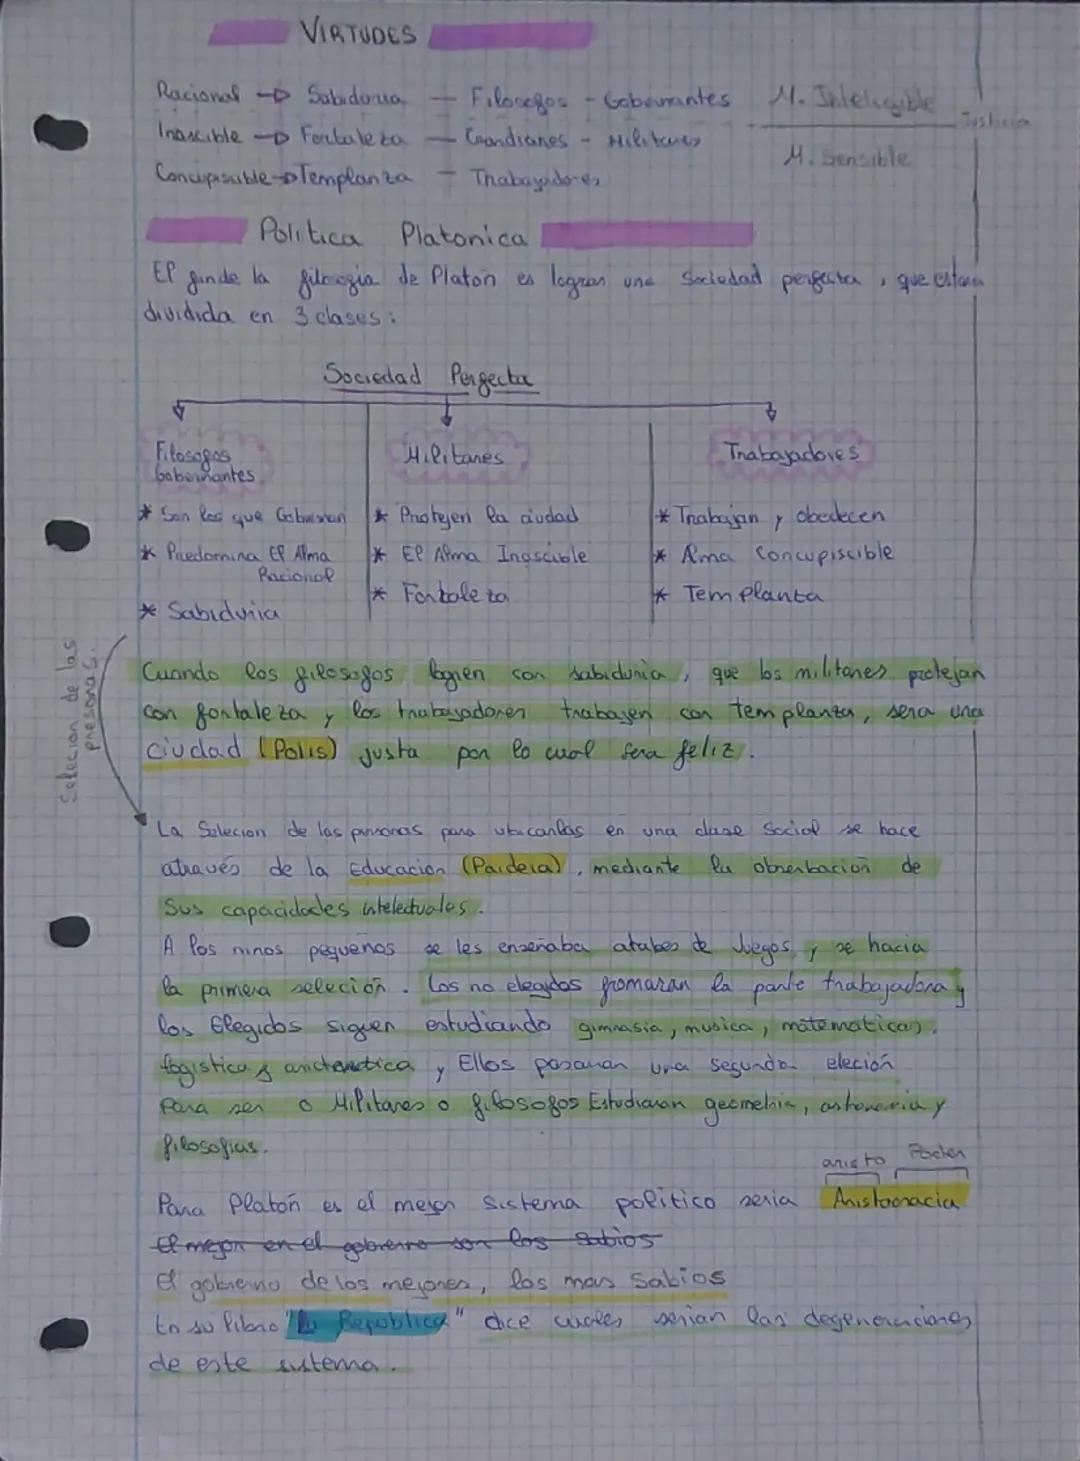 VIRTUDES
Racional → Sabiduria — Filosofos - Gobernantes
M. Inteligible
Justicia
Irascible → Fortaleza — Guardianes - Militares
M. Sensible
Concupiscible → Templanza — Trabajadores
Politica Platonica
El fin de la filosofia de Platón es lograr una Sociedad perfecta, que estara
dividida en 3 clases:
Sociedad Perfecta
Filosofos
Gobernantes
* Son los que Gobiernan
* Predomina El Alma
Racional
* Sabiduria
Militares
* Protejen la ciudad
* El Alma Irascible
* Fortaleza
Trabajadores
* Trabajan y obedecen
* Alma Concupiscible
* Templanta
Selecion de las
presonas.
Cuando los filosofos logren con sabiduria, que los militares protejan
con fortaleza y los trabajadores trabajen con templanza, sera una
ciudad (Polis) justa por lo cual sera feliz.
La Selecion de las personas para ubicarlas en una clase Social se hace
através de la Educacion (Paideia), mediante la obserbación de
Sus capacidades intelectuales.
A los ninos pequeños se les enseñaba atabes de Juegos, y se hacia
la primera seleción. Los no elegidos fromaran la parte trabajadora y
los Elegidos siguen estudiando gimnasia, musica, matematicas,
logistica y y Ellos pasaran una segunda eleción
para ser o Militares o filosofos Estudiaran geometria, y
filosofias.
aristo Poder
Para Platón es el mejor sistema politico seria Aristocracia
El mejor en el gobierno son los Sabios
El gobierno de los mejores, los mas Sabios
En su libro "La Republica" dice cuales serian las degeneraciones
de este sistema.